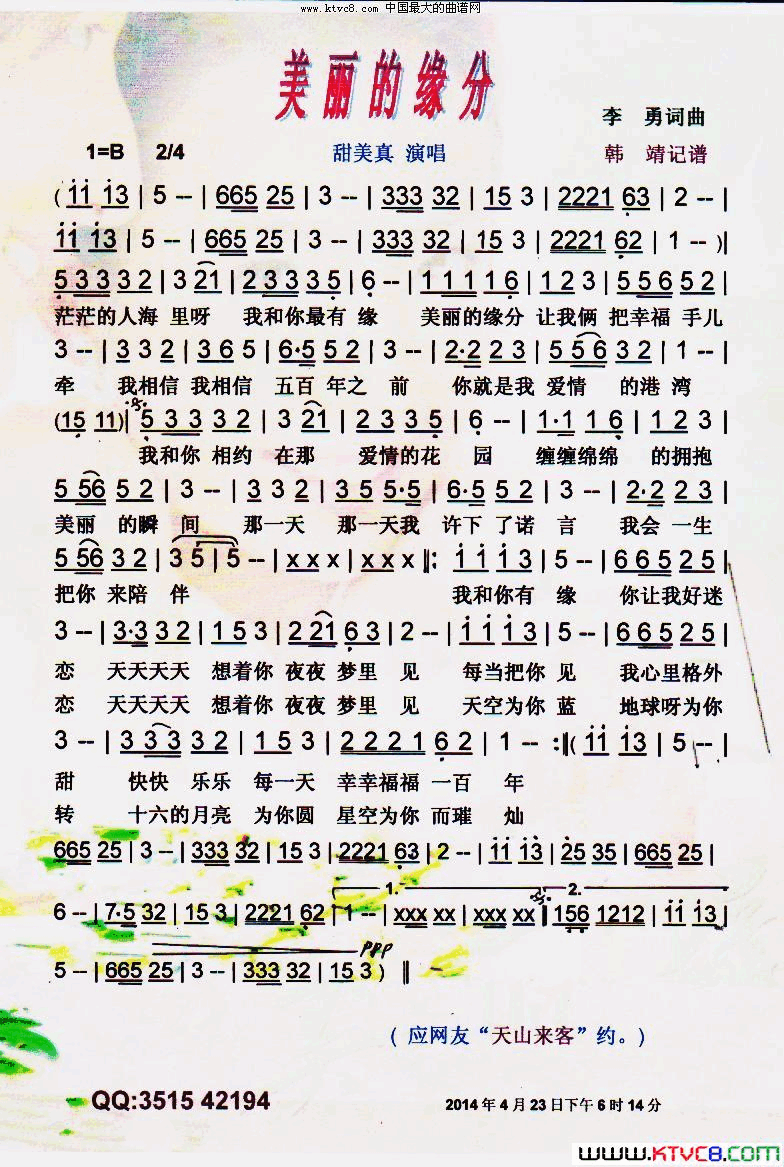 www.ktvc8.com 中国最大的曲谱网
美丽的缘分
李 勇词曲
1=B 2/4 甜美真 演唱 韩 靖记谱
( 11 13 | 5 -- | 665 25 | 3 -- | 333 32 | 15 3 | 2221 63 | 2 -- |
11 13 | 5 -- | 665 25 | 3 -- | 333 32 | 15 3 | 2221 62 | 1 -- )|
5 3 3 3 2 | 3 21 | 2 3 3 3 5 | 6 -- | 1 1 1 1 6 | 1 2 3 | 5 5 6 5 2 |
茫茫的人海 里呀 我和你最有 缘 美丽的缘分 让我俩 把幸福 手儿
3 -- | 3 3 2 | 3 6 5 | 6·5 5 2 | 3 -- | 2·2 2 3 | 5 5 6 3 2 | 1 -- |
牵 我相信 我相信 五百 年之 前 你就是我 爱情 的港 湾
(15 11)| 5 3 3 3 2 | 3 21 | 2 3 3 3 5 | 6 -- | 1·1 1 6 | 1 2 3 |
我和你 相约 在那 爱情的花 园 缠缠绵绵 的拥抱
5 56 5 2 | 3 -- | 3 3 2 | 3 5 5·5 | 6·5 5 2 | 3 -- | 2·2 2 3 |
美丽 的瞬 间 那一天 那一天我 许下 了诺 言 我会 一生
5 56 3 2 | 3 5 | 5 -- | x x x | x x x ‖: i i i 3 | 5 -- | 6 6 5 2 5 |
把你 来陪 伴 我和你有 缘 你让我好迷
3 -- | 3·3 3 2 | 1 5 3 | 2 21 6 3 | 2 -- | i i i 3 | 5 -- | 6 6 5 2 5 |
恋 天天天天 想着你 夜夜 梦里 见 每当把你 见 我心里格外
恋 天天天天 想着你 夜夜 梦里 见 天空为你 蓝 地球呀为你
3 -- | 3 3 3 3 2 | 1 5 3 | 2 2 2 1 6 2 | 1 -- :‖( 11 13 | 5 -- |
甜 快快 乐乐 每一天 幸幸福福 一百 年
转 十六的月亮 为你圆 星空为你 而璀 灿
665 25 | 3 -- | 333 32 | 15 3 | 2221 63 | 2 -- | 11 13 | 25 35 | 665 25 |
1. 2.
6 -- | 7·5 32 | 15 3 | 2221 62 | 1 -- | xxx xx | xxx xx ‖ 156 1212 | 11 13 |
ppp
5 -- | 665 25 | 3 -- | 333 32 | 15 3 ) ‖
( 应网友“天山来客”约。)
QQ:3515 42194 2014年4月23日下午6时14分
www.KTVC8.com